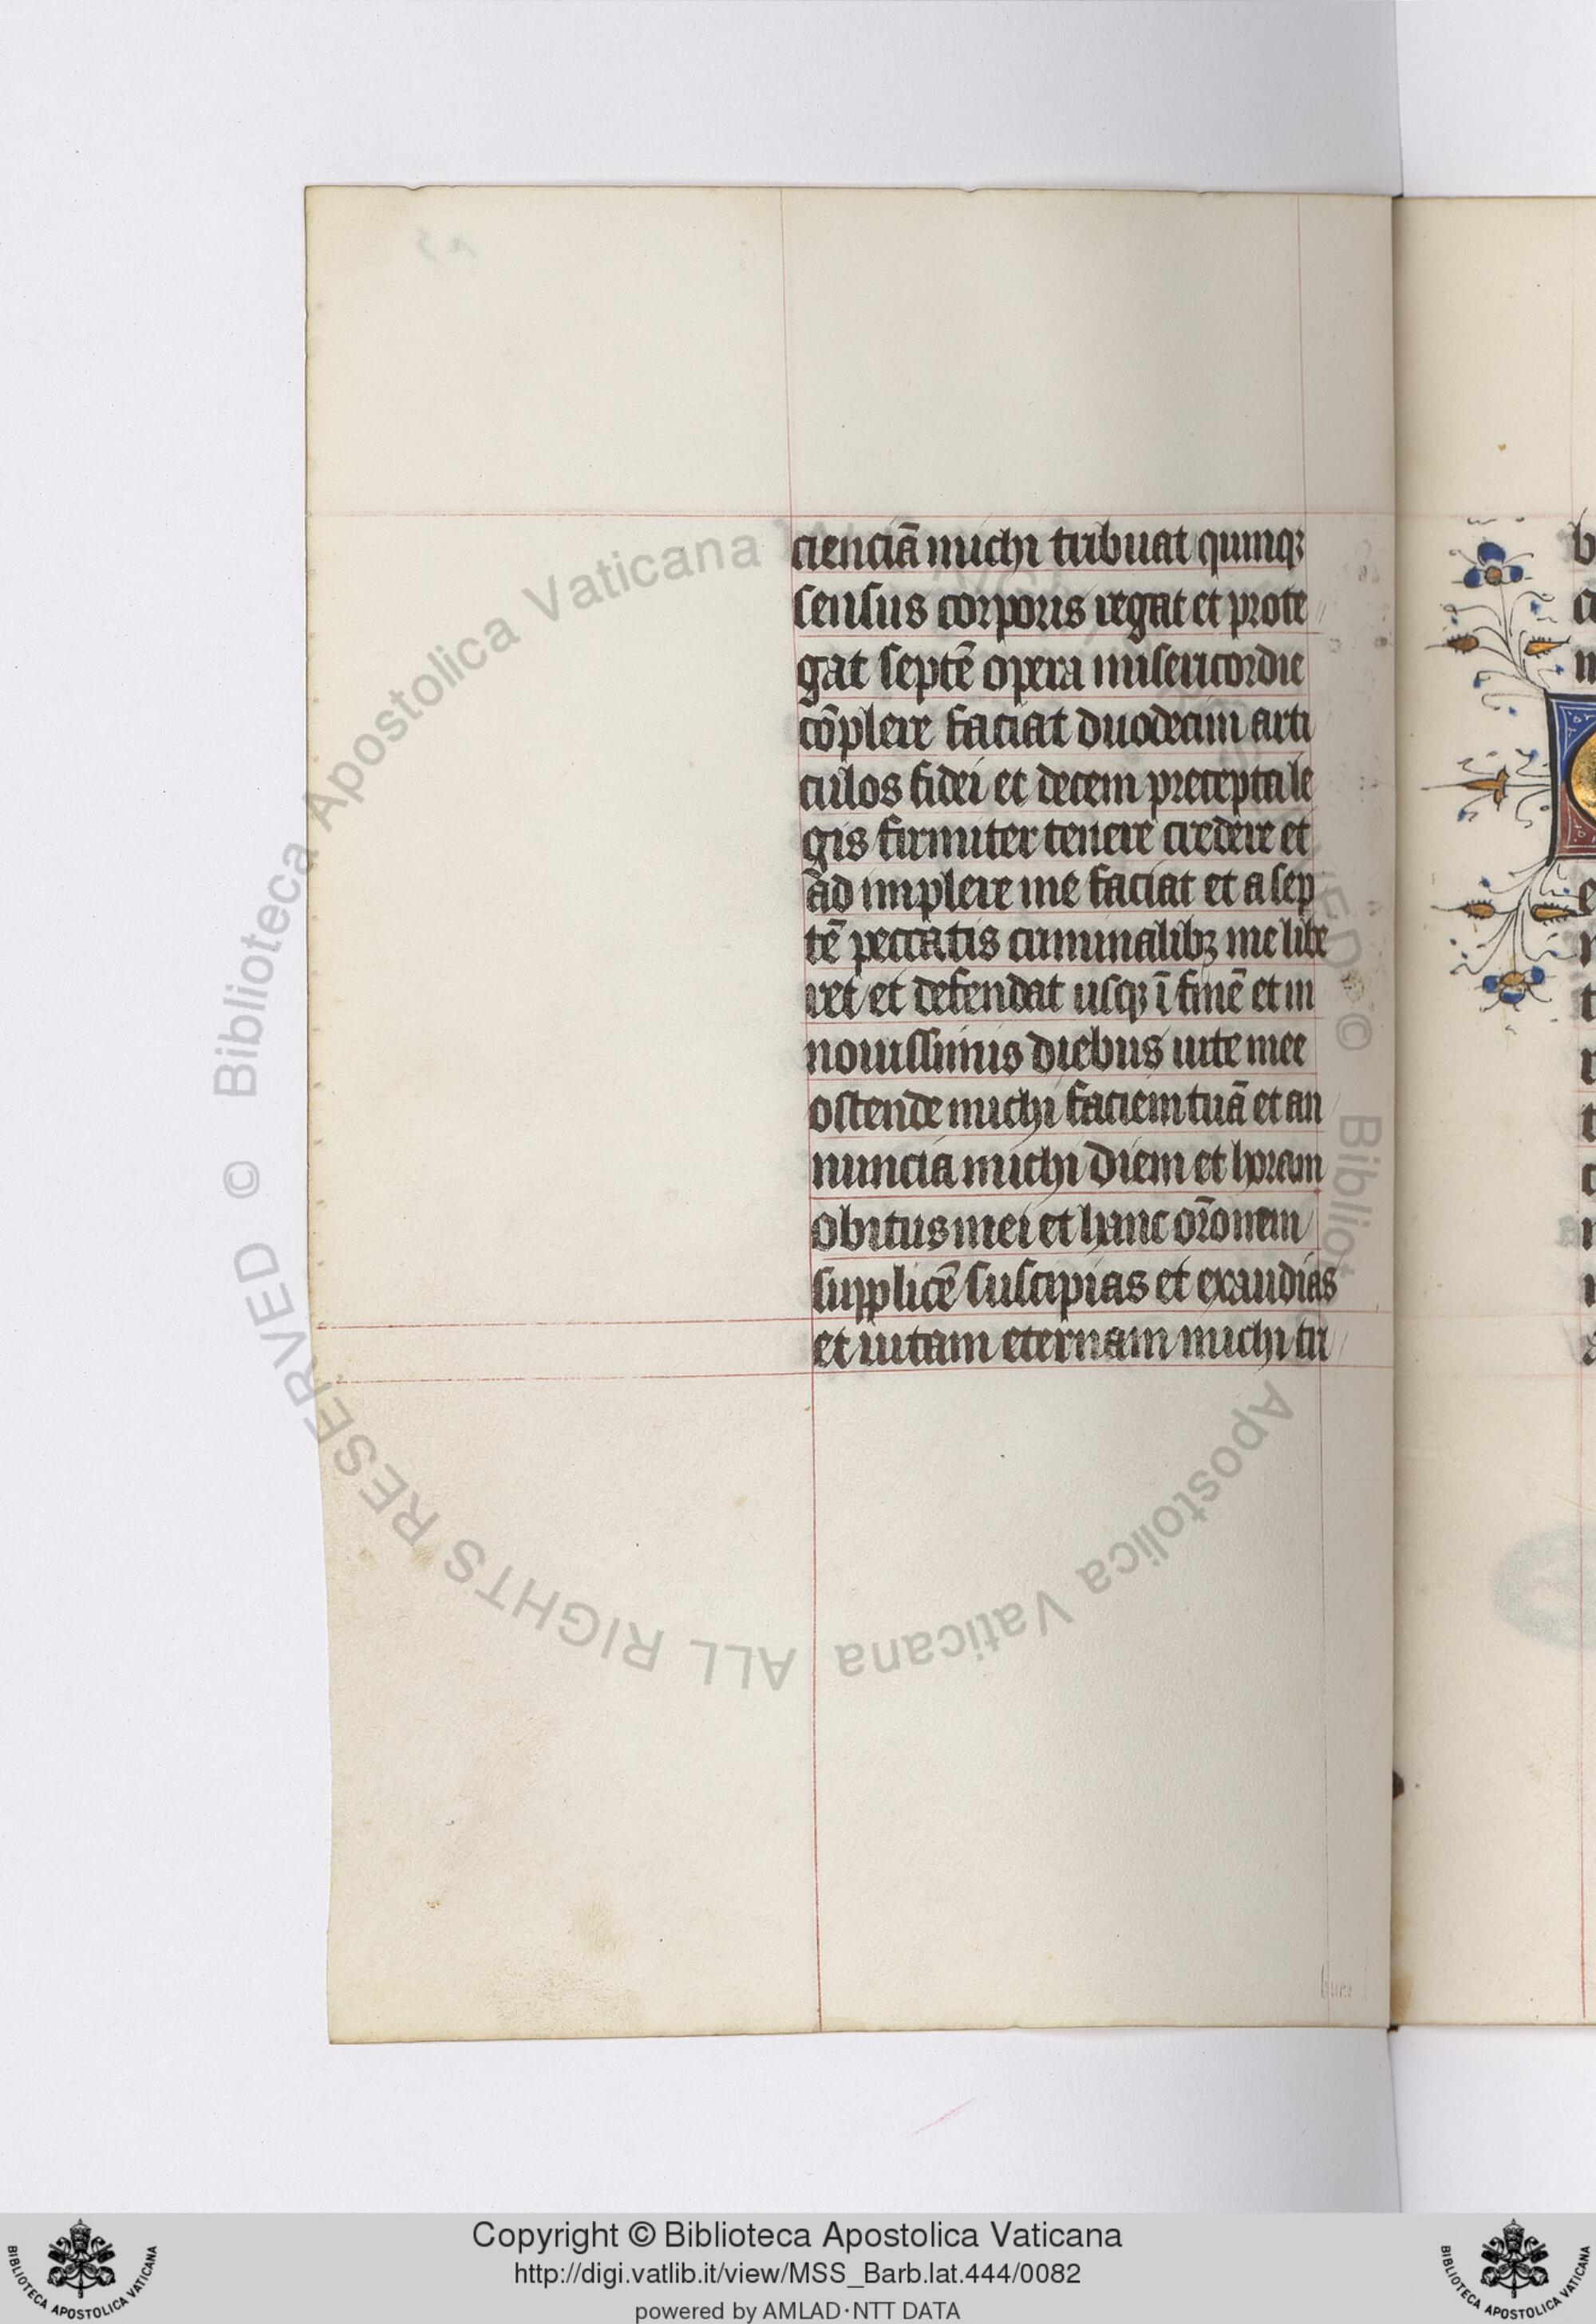 cienciā michi tribuat quinqꝫ
sensus corporis regat et prote
gat septē opera misericordie
cōplere faciat duodecim arti
culos fidei et decem precepta le
gis firmiter tenere credere et
ad implere me faciat et a sep
tē peccatis criminalibꝫ me libe
ret et defendat usqꝫ ī finē et in
nouissimis diebus uite mee
ostende michi faciem tuā et an
nuncia michi diem et horam
obitus mei et hanc or̄onem
supplicē suscipias et exaudias
et uitam eternam michi tri
Copyright © Biblioteca Apostolica Vaticana
http://digi.vatlib.it/view/MSS_Barb.lat.444/0082
powered by AMLAD·NTT DATA
BIBLIOTECA APOSTOLICA VATICANA
BIBLIOTECA APOSTOLICA VATICANA
© Biblioteca Apostolica Vaticana
ALL RIGHTS RESERVED
Apostolica Vaticana